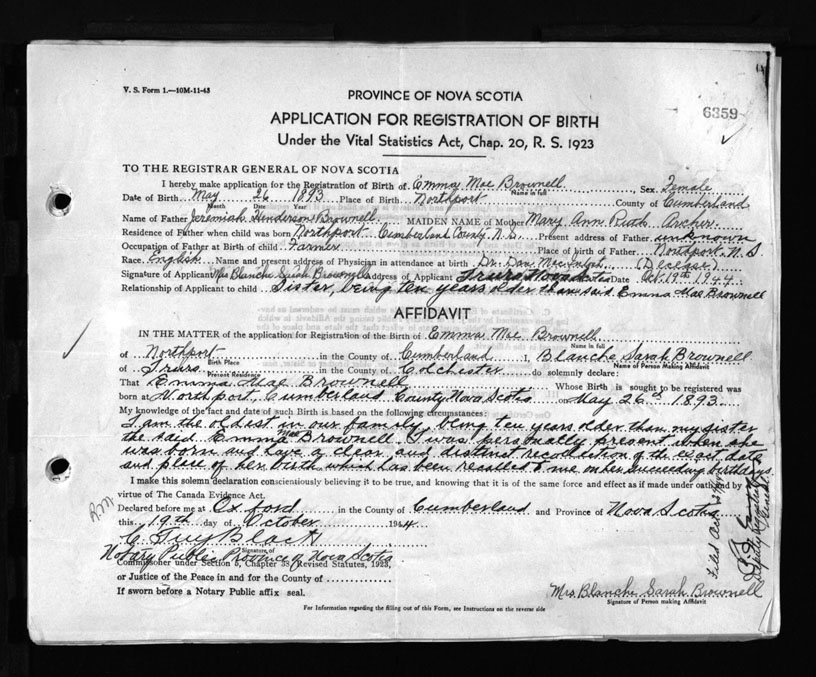 V. S. Form 1.—10M-11-43
PROVINCE OF NOVA SCOTIA
6359
APPLICATION FOR REGISTRATION OF BIRTH
Under the Vital Statistics Act, Chap. 20, R. S. 1923
TO THE REGISTRAR GENERAL OF NOVA SCOTIA
I hereby make application for the Registration of Birth of Emma Mae Brownell Sex Female
Name in full
Date of Birth May 26 1893 Place of Birth Northport County of Cumberland
Month Date Year
Name of Father Jeremiah Henderson Brownell MAIDEN NAME of Mother Mary Ann Ruth Archer
Residence of Father when child was born Northport Cumberland County N.S. Present address of Father unknown
Occupation of Father at Birth of child Farmer Place of birth of Father Northport, N.S.
Race English Name and present address of Physician in attendance at birth Dr. Dan MacIntosh (Decease)
Signature of Applicant Mrs Blanche Sarah Brownell Address of Applicant Truro Nova Scotia Date Oct. 19th 1944
Relationship of Applicant to child Sister, being ten years older than said Emma Mae Brownell
AFFIDAVIT
IN THE MATTER of the application for Registration of the Birth of Emma Mae Brownell
Name in full
of Northport in the County of Cumberland I, Blanche Sarah Brownell
Birth Place Name of Person Making Affidavit
of Truro in the County of Colchester do solemnly declare:
Present Residence
That Emma Mae Brownell Whose Birth is sought to be registered was
born at Northport, Cumberland County Nova Scotia on May 26th 1893
My knowledge of the fact and date of such Birth is based on the following circumstances:
I am the oldest in our family, being ten years older than my sister
the said Emma Mae Brownell. I was personally present when she
was born and have a clear and distinct recollection of the exact date
and place of her birth which has been recalled to me on her succeeding birthdays
I make this solemn declaration conscientiously believing it to be true, and knowing that it is of the same force and effect as if made under oath and by
virtue of The Canada Evidence Act.
R.M.
Declared before me at Oxford in the County of Cumberland and Province of Nova Scotia
this 19th day of October 1944
C. Guy Black
Signature of
Notary Public Province of Nova Scotia
Commissioner under Section 5, Chapter 38, Revised Statutes, 1923,
or Justice of the Peace in and for the County of
If sworn before a Notary Public affix seal.
Mrs. Blanche Sarah Brownell
Signature of Person making Affidavit
For Information regarding the filling out of this Form, see Instructions on the reverse side
Filed Oct
Deputy Registrar General